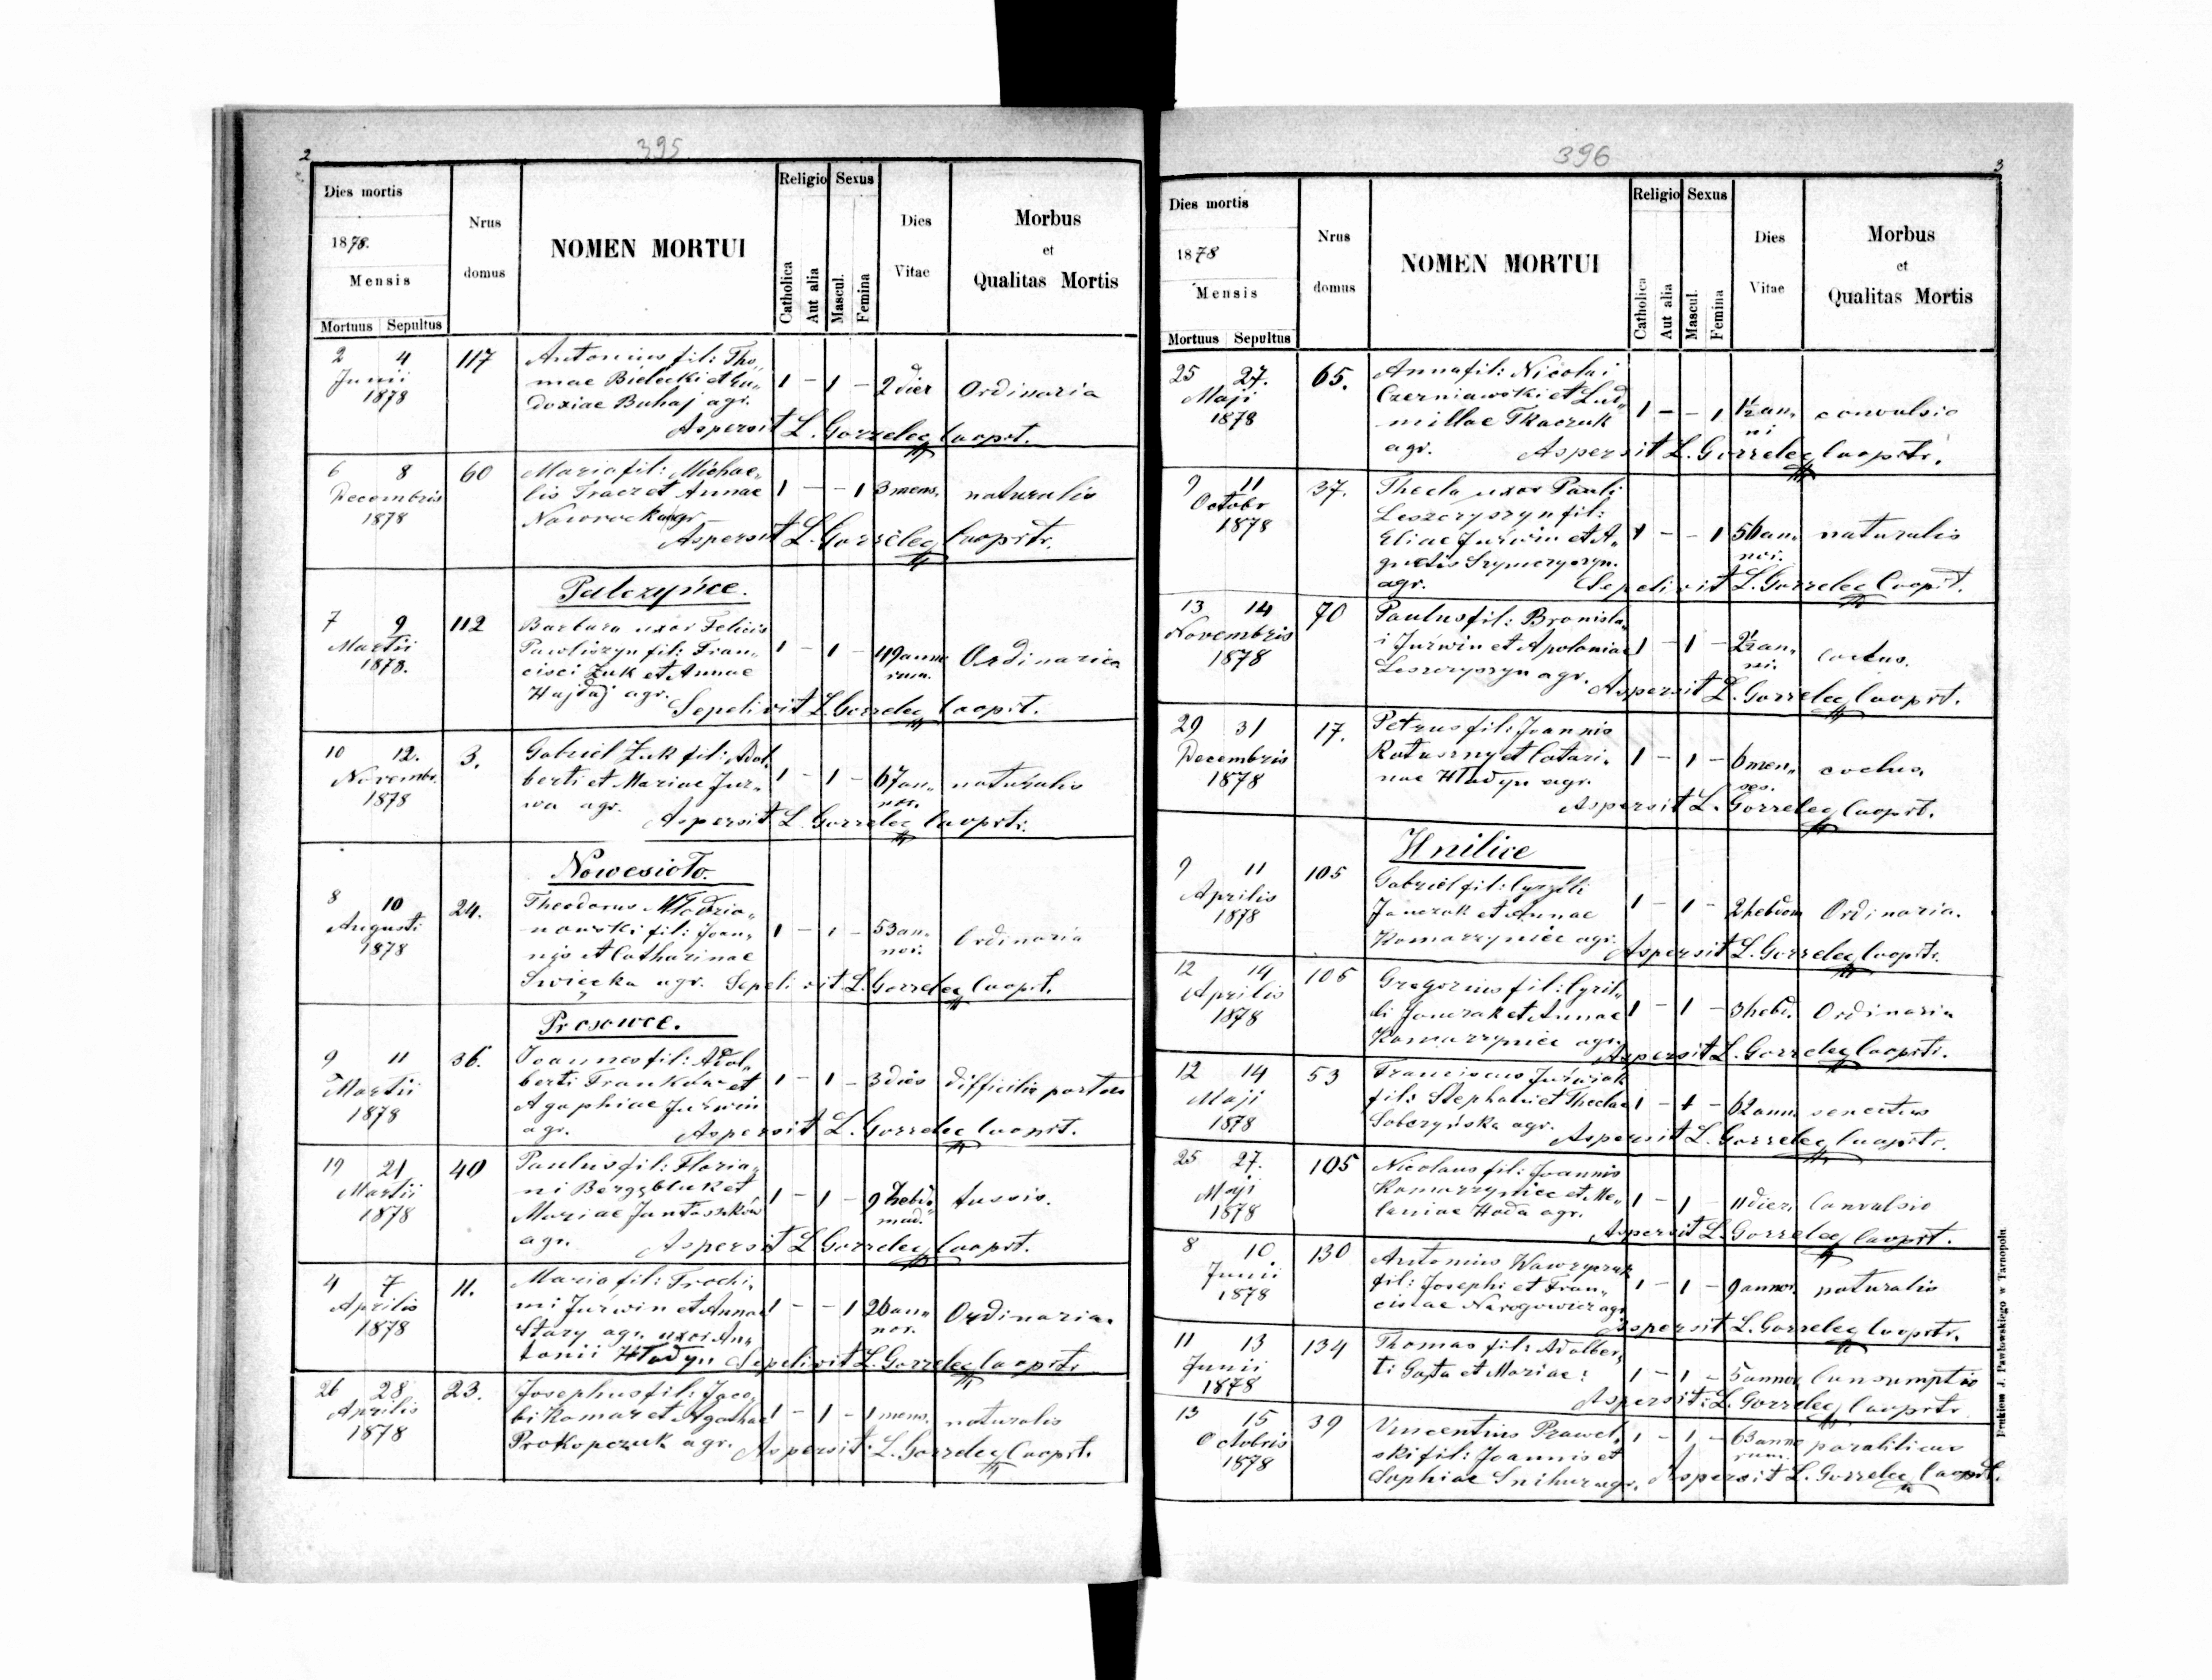 2
395
Dies mortis
1878.
Mensis
Mortuus Sepultus
Nrus domus
NOMEN MORTUI
Religio
Catholica
Aut alia
Sexus
Mascul.
Femina
Dies Vitae
Morbus et Qualitas Mortis
2 4 117 Antonius fil: Tho„
Junii mae Bielecki et Eu„ 1 – 1 – 2 dier Ordinaria
1878 doxiae Buhaj agr.
Aspersit L. Gorzelec Cooprt.
6 8 60 Maria fil: Michae„
Decembris lis Tracz et Annae 1 – – 1 3 mens. naturalis
1878 Nawrocka agr
Aspersit L. Gorzelec Cooprtr.
Palczyńce.
7 9 112 Barbara uxor Felicis
Martii Pawliszyn fil: Fran„ 1 – 1 – 49 anno Ordinaria
1878. cisci Żuk et Annae rum.
Hajdaj agr. Sepelivit L. Gorzelec Cooprt.
10 12. 3. Gabriel Żuk fil: Adal.
Novembr. berti et Mariae Jur„ 1 – 1 – 67 an„ naturalis
1878 wa agr. nor.
Aspersit L. Gorzelec Cooprtr.
Nowesioło.
8 10 24. Theodorus Młodzia„
Augusti nowski fil: Joan„ 1 – 1 – 53 an„ Ordinaria
1878 nis et Catharinae nor.
Swięcka agr. Sepelivit L. Gorzelec Cooprt.
Prosowce.
9 11 36. Joannes fil: Adal„
Martii berti Franków et 1 – 1 – 3 dies difficilis partus
1878 Agaphiae Jurwin
agr. Aspersit L. Gorzelec Cooprt.
19 21 40 Paulus fil: Floria„
Martii ni et 1 – 1 – 9 hebdo„ tussis.
1878 Mariae mad.
agr. Aspersit L. Gorzelec Cooprt.
4 7 11. Maria fil: Trochi„
Aprilis mi Jurwin et Annae 1 – – 1 26 an„ Ordinaria.
1878 Stary agr. uxor An„ nor.
tonii Hładyn Sepelivit L. Gorzelec Cooprtr
26 28 23. Josephus fil: Jaco„
Aprilis bi Komar et Agathae 1 – 1 – 1 mens. naturalis
1878 Prokopczuk agr. Aspersit L. Gorzelec Cooprt.
396
3
Dies mortis
1878
Mensis
Mortuus Sepultus
Nrus domus
NOMEN MORTUI
Religio
Catholica
Aut alia
Sexus
Mascul.
Femina
Dies Vitae
Morbus et Qualitas Mortis
25 27. 65. Anna fil: Nicolai
Maji Czerniawski et Lud„
1878 millae Tkaczuk 1 – – 1 1½ an„ convulsio
agr. ni
Aspersit L. Gorzelec Cooprtr.
9 11 37. Thecla uxor Pauli
Octobr Leszczyszyn fil:
1878 Eliae Jurwin et A„ 1 – – 1 56 an„ naturalis
gnetis Szymczyszyn. nor.
agr. Sepelivit L. Gorzelec Cooprt.
13 14 70 Paulus fil: Bronisla„
Novembris i Jurwin et Apoloniae 1 – 1 – 2½ an„
1878 Leszczyszyn agr. ni.
Aspersit L. Gorzelec Cooprt.
29 31 17. Petrus fil: Joannis
Decembris et Catari„ 1 – 1 – 6 men„
1878 nae Hładyn agr. ses.
Aspersit L. Gorzelec Cooprt.
Hnilice
9 11 105 Gabriel fil:
Aprilis Janczak et Annae 1 – 1 – 2 hebdom Ordinaria.
1878 Komarzyniec agr.
Aspersit L. Gorzelec Cooprtr.
12 14 105 Gregorius fil: Cyril„
Aprilis li Janczak et Annae 1 – 1 – 3 hebd. Ordinaria
1878 Komarzyniec agr.
Aspersit L. Gorzelec Cooprtr.
12 14 53 Franciscus Jurwiak
Maji fil: Stephani et Theclae 1 – 1 – 62 ann. senectus
1878 Sobczyńska agr.
Aspersit L. Gorzelec Cooprtr.
25 27. 105 Nicolaus fil: Joannis
Maji Komarzyniec et Me„ 1 – 1 – 11 dier. Convulsio
1878 laniae Hoda agr.
Aspersit L. Gorzelec Cooprt.
8 10 130 Antonius Wawrzyczuk
Junii fil: Josephi et Fran„ 1 – 1 – 9 annor. naturalis
1878 ciscae Narogowicz agr
Aspersit L. Gorzelec Cooprtr.
11 13 134 Thomas fil: Adalber„
Junii ti Gajda et Mariae: 1 – 1 – 5 annor Consumptio
1878 Aspersit: L. Gorzelec Cooprtr
13 15 39 Vincentius
Octobris ski fil: Joannis et 1 – 1 – 63 anno paraliticus
1878 Sophiae Snihur agr. rum.
Aspersit L. Gorzelec Cooprt.
Drukiem J. Pawłowskiego w Tarnopolu.